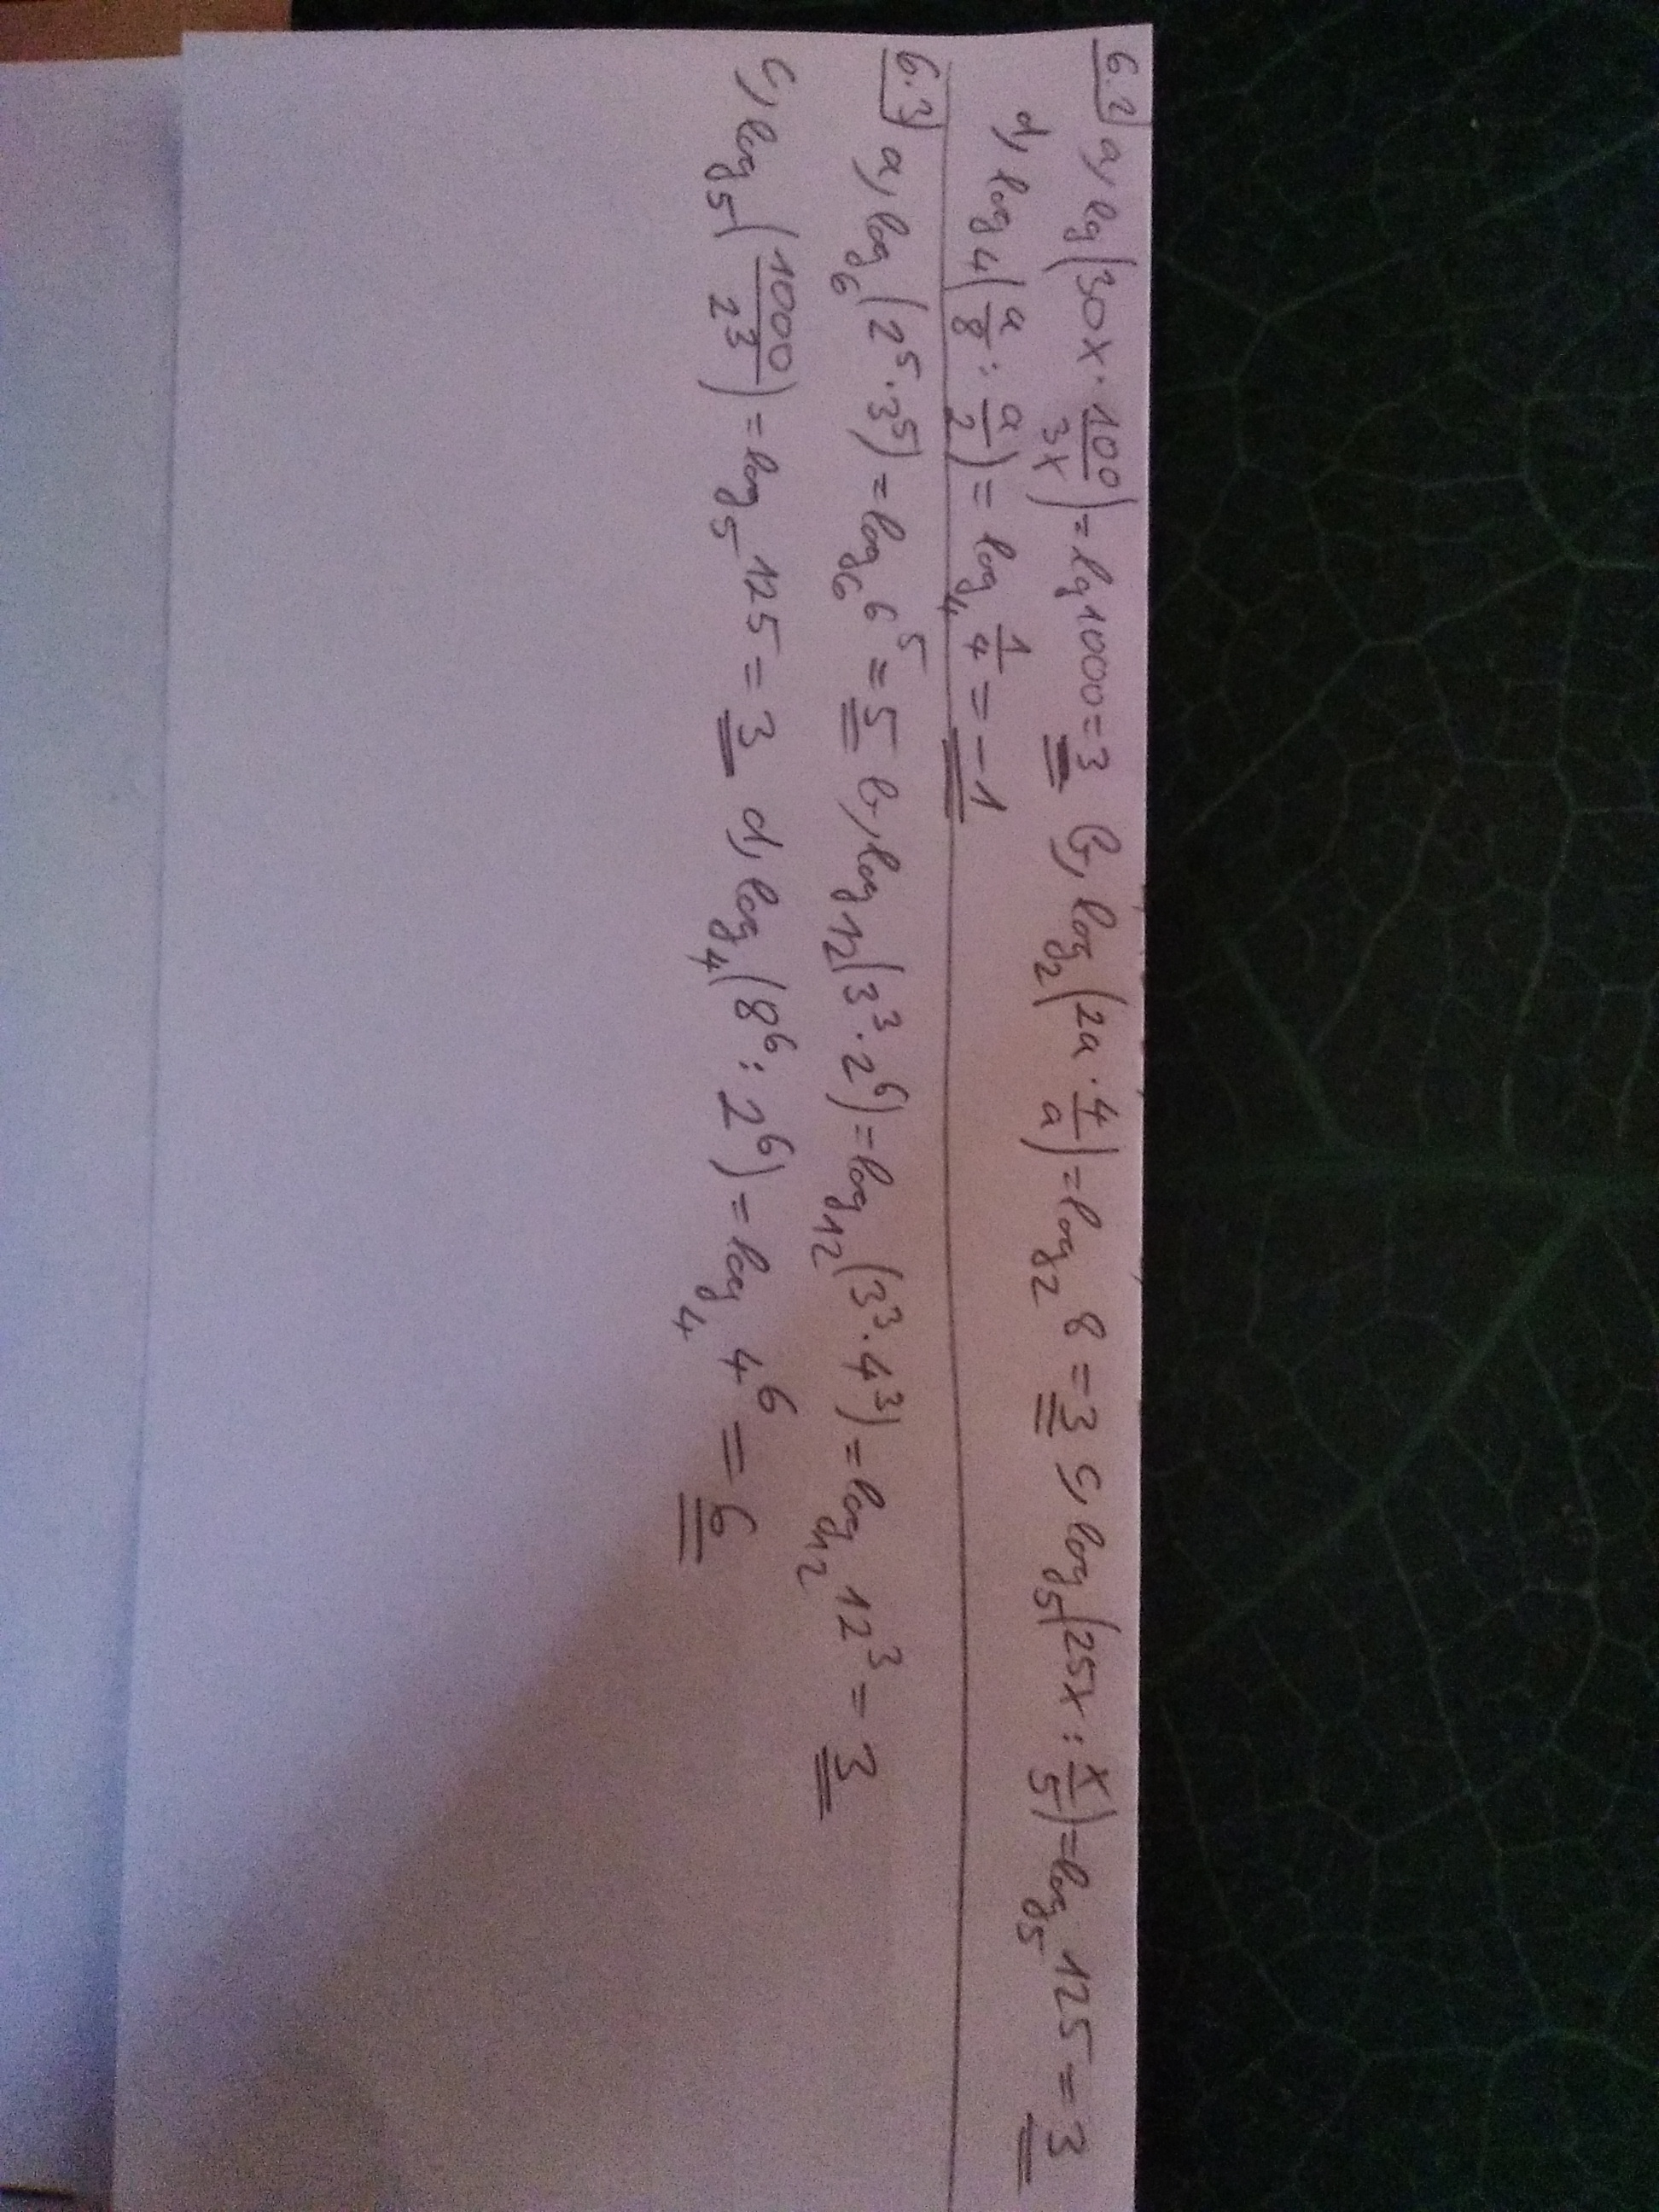 6.2 a, lg(30x · 100/3x) = lg 1000 = 3 b, log₂(2a · 4/a) = log₂ 8 = 3 c, log₅(25x : x/5) = log₅ 125 = 3
d, log₄(a/8 : a/2) = log₄ 1/4 = -1
6.3 a, log₆(2⁵ · 3⁵) = log₆ 6⁵ = 5 b, log₁₂(3³ · 2⁶) = log₁₂(3³ · 4³) = log₁₂ 12³ = 3
c, log₅(1000/2³) = log₅ 125 = 3 d, log₄(8⁶ : 2⁶) = log₄ 4⁶ = 6